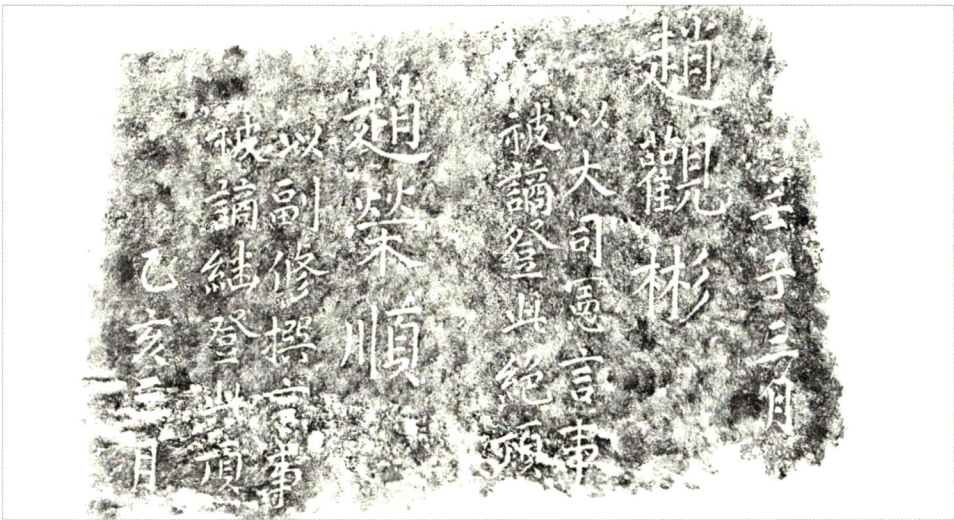 壬子三月
趙觀彬
以大司憲言事
被謫登此絶頂
趙榮順
以副修撰言事
被謫継登此頂
乙亥三月